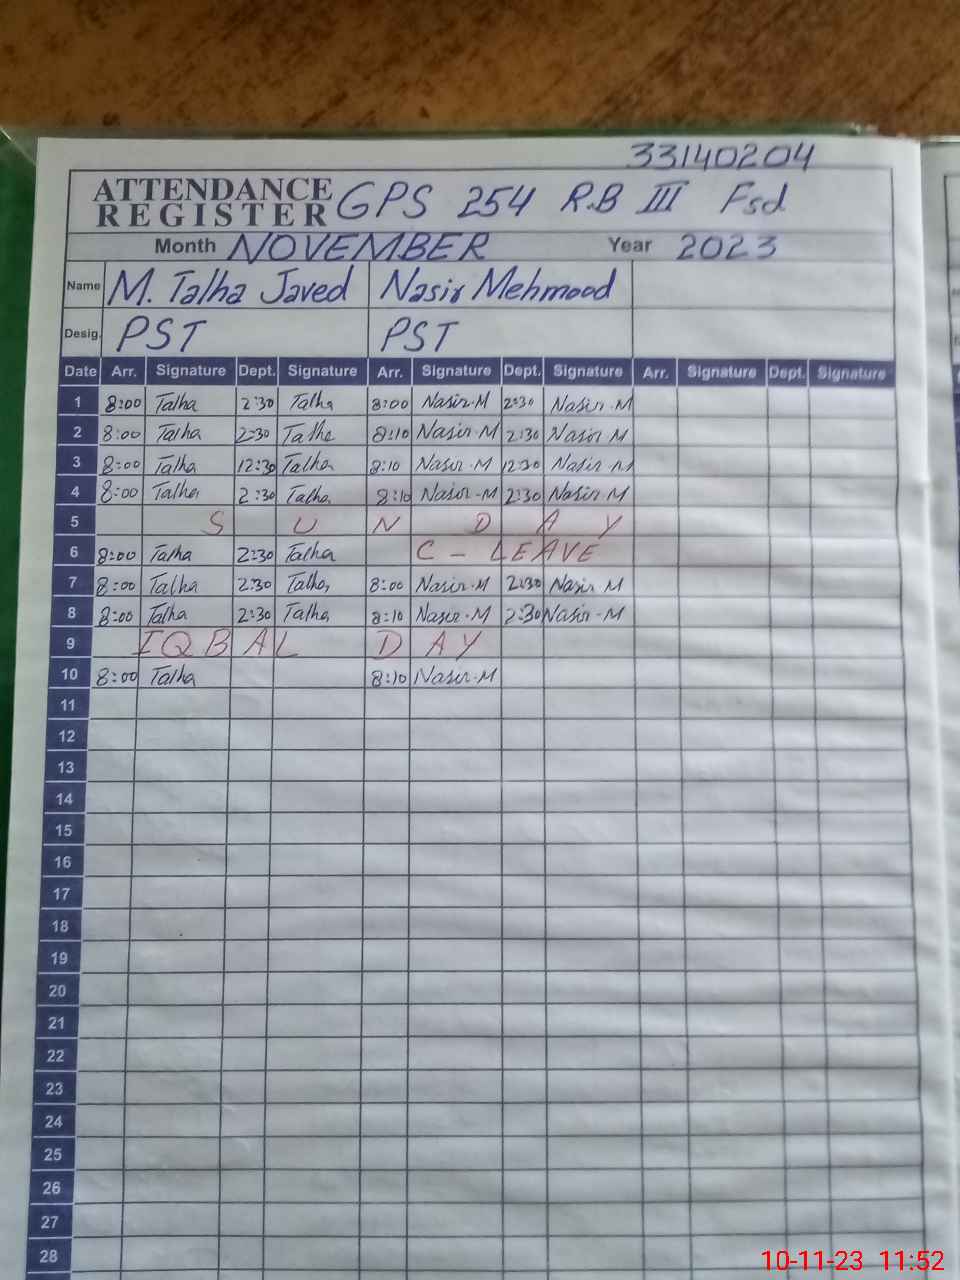 33140204
ATTENDANCE REGISTER GPS 254 R.B III Fsd
Month NOVEMBER Year 2023
Name M. Talha Javed Nasir Mehmood
Desig. PST PST
Date Arr. Signature Dept. Signature Arr. Signature Dept. Signature Arr. Signature Dept. Signature
1 8:00 Talha 2:30 Talha 8:00 Nasir.M 2:30 Nasir.M
2 8:00 Talha 2:30 Talha 8:10 Nasir.M 2:30 Nasir M
3 8:00 Talha 12:30 Talha 8:10 Nasir.M 12:30 Nasir.M
4 8:00 Talha 2:30 Talha 8:10 Nasir-M 2:30 Nasir.M
5 SUNDAY
6 8:00 Talha 2:30 Talha C - LEAVE
7 8:00 Talha 2:30 Talha 8:00 Nasir.M 2:30 Nasir M
8 8:00 Talha 2:30 Talha 8:10 Nasir.M 2:30 Nasir-M
9 IQBAL DAY
10 8:00 Talha 8:10 Nasir.M
11
12
13
14
15
16
17
18
19
20
21
22
23
24
25
26
27
28
10-11-23 11:52